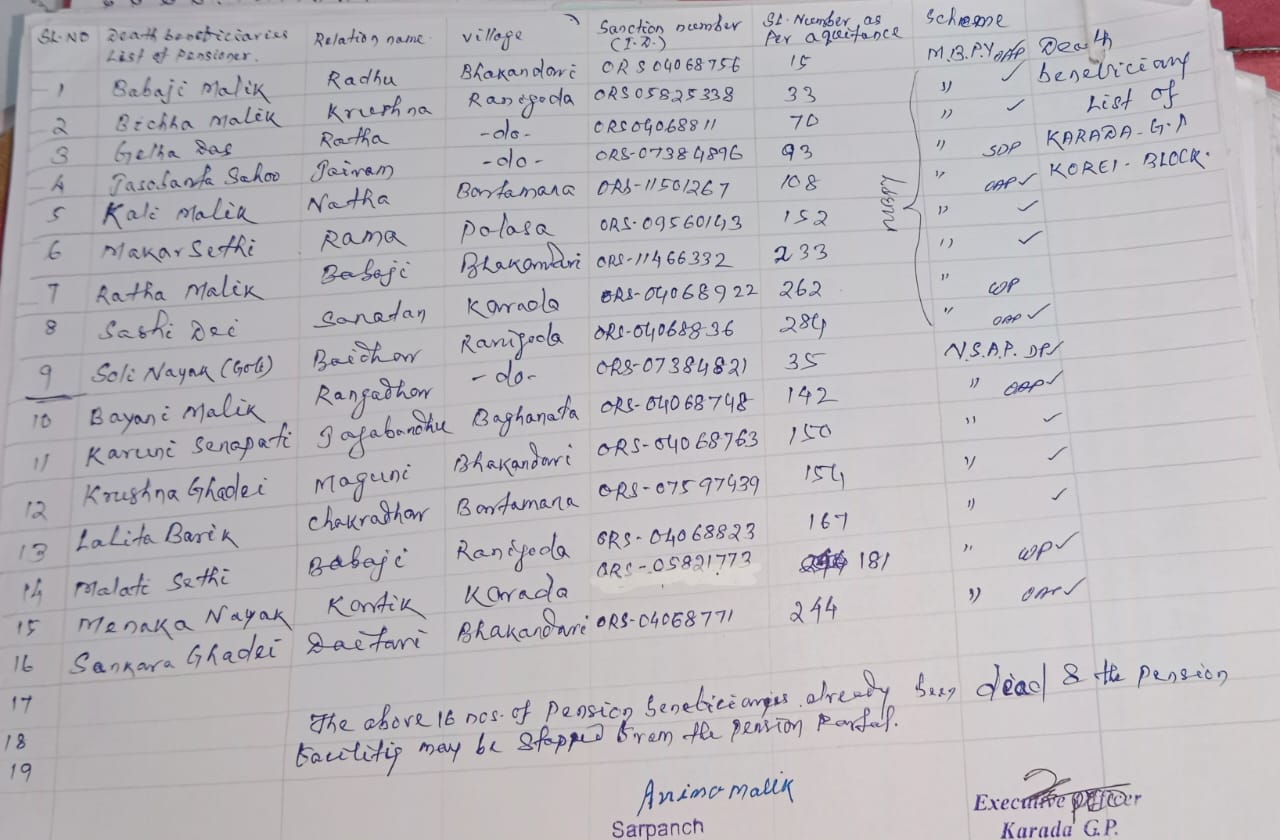 SL.NO Death beneficiaries List of Pensioner. Relation name village Sanction number (I.D.) SL. Number as Per aquitance Scheme
1 Babaji Malik Radhu Bhakandari ORS04068756 15 M.B.P.Y OAP
2 Bichha Malik Krushna Ranigoda ORS05825338 33 " ✓
3 Gelha Das Ratha -do- ORS04068811 70 " ✓
4 Jasobanta Sahoo Jairam -do- ORS-07384896 93 " SDP
5 Kali Malik Natha Bartamana ORS-11501267 108 " OAP✓
6 Makar Sethi Rama Palasa ORS-09560143 152 " ✓
7 Ratha Malik Babaji Bhakandari ORS-11466332 233 " ✓
8 Sashi Dei Sanatan Karada ORS-04068922 262 " WP
9 Soli Nayak (Goli) Baidhar Ranigoda ORS-04068836 284 " OAP✓
10 Bayani Malik Rangadhar -do- ORS-07384821 35 N.S.A.P. DP✓
11 Karuni Senapati Jagabandhu Baghanata ORS-04068748 142 " OAP✓
12 Krushna Ghadei Maguni Bhakandari ORS-04068763 150 " ✓
13 Lalita Barik Chakradhar Bartamana ORS-07597439 154 " ✓
14 Malati Sethi Babaji Ranigoda ORS-04068823 167 " ✓
15 Menaka Nayak Kartik Karada ORS-05821773 181 " WP✓
16 Sankara Ghadei Daitari Bhakandari ORS-04068771 244 " OAP✓
17
18
19
Death
beneficiary
List of
KARADA-G.P
KOREI-BLOCK.
The above 16 nos. of Pension beneficiaries already been dead & the pension
facilitis may be stopped from the pension Portal.
Anima malik
Sarpanch
Executive Officer
Karada G.P.